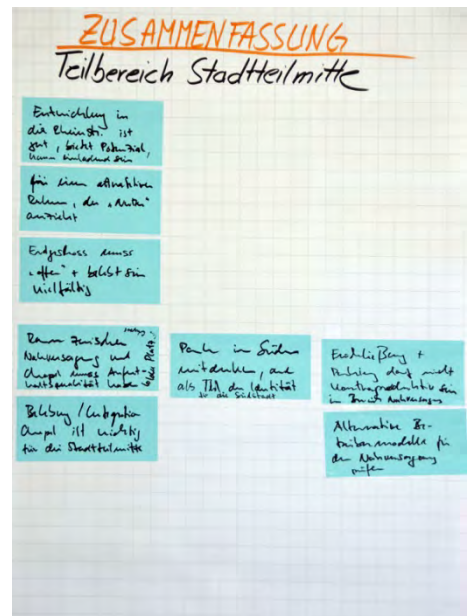 ZUSAMMENFASSUNG
Teilbereich Stadtteilmitte
Entwicklung in
die Rheinstr. ist
gut, bietet Potenzial,
kann einladend sein
für einen attraktiven
Rahmen, der "Mieter"
anzieht
Erdgeschoss muss
"offen" + belebt sein
vielfältig
Raum zwischen
Nahversorgung und
Chapel muss Aufent-
haltsqualität haben
Belebung / Integration
Chapel ist wichtig
für die Stadtteilmitte
Park im Süden
mitdenken, auch
als Teil der Identität
für die Südstadt
Erschließung +
Parking darf nicht
kontraproduktiv sein
im Bereich Nahversorgung
Alternative Be-
treibermodelle für
den Nahversorgung
prüfen